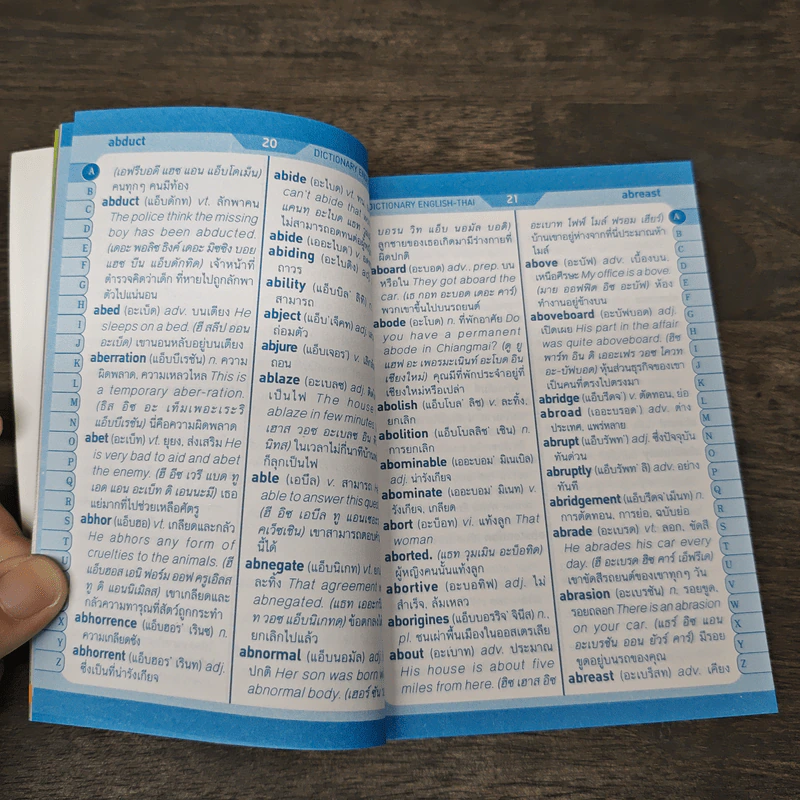 abduct
20
DICTIONARY EN
A
B
C
D
E
F
G
H
I
J
K
L
M
N
O
P
Q
R
S
T
U
X
Y
Z
(เอฟรีบอดี แฮซ แอน แอ็บโดเม็น)
คนทุกๆ คนมีท้อง
abduct (แอ็บดักท) vt. ลักพาคน
The police think the missing
boy has been abducted.
(เดอะ พอลิซ ธิงค์ เดอะ มิซซิง บอย
แฮซ บีน แอ็บดักทิด) เจ้าหน้าที่
ตำรวจคิดว่าเด็ก ที่หายไปถูกลักพา
ตัวไปแน่นอน
abed (อะเบ็ด) adv. บนเตียง He
sleeps on a bed. (ฮี สลีป ออน
อะเบ็ด) เขานอนหลับอยู่บนเตียง
aberration (แอ็บบีเรชัน) n. ความ
ผิดพลาด, ความเหลวไหล This is
a temporary aber-ration.
(ธิส อิซ อะ เท็มเพอะเระริ
แอ็บบีเรชัน) นี่คือความผิดพลาด
abet (อะเบ็ท) vt. ยุยง, ส่งเสริม He
is very bad to aid and abet
the enemy. (ฮี อีซ เวรี แบด ทู
เอด แอน อะเบ็ท ดิ เอนนะมี) เธอ
แย่มากที่ไปช่วยเหลือศัตรู
abhor (แอ็บฮอ) vt. เกลียดและกลัว
He abhors any form of
cruelties to the animals. (ฮี
แอ็บฮอส เอนิ ฟอร์ม ออฟ ครูเอิลส
ทู ดิ แอนนิเมิลส) เขาเกลียดและ
กลัวความทารุณที่สัตว์ถูกกระทำ
abhorrence (แอ็บฮอร' เรินซ) n.
ความเกลียดชัง
abhorrent (แอ็บฮอร' เรินท) adj.
ซึ่งเป็นที่น่ารังเกียจ
abide (อะไบด) vt.
can't abide that
แคนท อะไบด แธท
ไม่สามารถอดทนต่อ
abide (เออะไบด) v.
abiding (อะไบดิง)
ถาวร
ability (แอ็บบิล' ลิตี)
สามารถ
abject (แอ็บ'เจ็คท) adj.
ถ่อมตัว
abjure (แอ็บเจอร) v.
ถอน
ablaze (อะเบลซ) adj.
เป็นไฟ The house
ablaze in few minutes.
เฮาส วอซ อะเบลซ อิน
นิทส) ในเวลาไม่กี่นาทีบ้าน
ก็ลุกเป็นไฟ
able (เอเบิล) v. สามารถ
able to answer this que
(ฮี อิซ เอเบิล ทู แอนเซอ
คเว็ซเชิน) เขาสามารถตอบคำ
นี้ได้
abnegate (แอ็บนิเกท) vt.
ละทิ้ง That agreement
abnegated. (แธท เออะกรี
ท วอซ แอ็บนิเกทด) ข้อตกลง
ยกเลิกไปแล้ว
abnormal (แอ็บนอมัล) adj
ปกติ Her son was born w
abnormal body. (เฮอร์ ซัน
DICTIONARY ENGLISH-THAI
21
abreast
บอรน วิท แอ็บ นอมัล บอดี)
ลูกชายของเธอเกิดมามีร่างกายที่
ผิดปกติ
aboard (อะบอด) adv., prep. บน
หรือใน They got aboard the
car. (เธ กอท อะบอด เดอะ คาร์)
พวกเขาขึ้นไปบนรถยนต์
abode (อะโบด) n. ที่พักอาศัย Do
you have a permanent
abode in Chiangmai? (ดู ยู
แฮฟ อะ เพอรมะเนินท์ อะโบด อิน
เชียงใหม่) คุณมีที่พักประจำอยู่ที่
เชียงใหม่หรือเปล่า
abolish (แอ็บโบล' ลิช) v. ละทิ้ง,
ยกเลิก
abolition (แอ็บโบลลิช' เชิน) n.
การยกเลิก
abominable (เออะบอม' มิเนเบิล)
adj. น่ารังเกียจ
abominate (เออะบอม' มิเนท) v.
รังเกียจ, เกลียด
abort (อะบ๊อท) vi. แท้งลูก That
woman
aborted. (แธท วุมเมิน อะบ็อทิด)
ผู้หญิงคนนั้นแท้งลูก
abortive (อะบอทิฟ) adj. ไม่
สำเร็จ, ล้มเหลว
aborigines (แอ็บบอรริจ' จินีส) n.,
pl. ชนเผ่าพื้นเมืองในออสเตรเลีย
about (อะเบาท) adv. ประมาณ
His house is about five
miles from here. (ฮิซ เฮาส อิซ
อะเบาท ไฟฟ์ ไมล์ ฟรอม เฮียร์)
บ้านเขาอยู่ห่างจากที่นี่ประมาณห้า
ไมล์
above (อะบัฟ) adv. เนื้องบน,
เหนือศีรษะ My office is a bove.
(มาย ออฟฟิต อีซ อะบัฟ) ห้อง
ทำงานอยู่ข้างบน
aboveboard (อะบัฟบอด) adj.
เปิดเผย His part in the affair
was quite aboveboard. (ฮิซ
พาร์ท อิน ดิ เออะเฟร วอซ ไควท
อะ-บัฟบอด) หุ้นส่วนธุรกิจของเขา
เป็นคนที่ตรงไปตรงมา
abridge (แอ็บรีดจ') v. ตัดทอน, ย่อ
abroad (เออะบรอด') adv. ต่าง
ประเทศ, แพร่หลาย
abrupt (แอ็บรัพท') adj. ซึ่งปัจจุบัน
ทันด่วน
abruptly (แอ็บรัพท' ลี) adv. อย่าง
ทันที
abridgement (แอ็บรีดจ'เม็นท) n.
การตัดทอน, การย่อ, ฉบับย่อ
abrade (อะเบรด) vt. ลอก, ขัดสี
He abrades his car every
day. (ฮี อะเบรด ฮิซ คาร์ เอ็ฟรีเด)
เขาขัดสีรถยนต์ของเขาทุกๆ วัน
abrasion (อะเบรชัน) n. รอยขูด,
รอยถลอก There is an abrasion
on your car. (แธร์ อีซ แอน
อะเบรชัน ออน ยัวร์ คาร์) มีรอย
ขูดอยู่บนรถของคุณ
abreast (อะเบร็สท) adv. เคียง
A
B
C
D
E
F
G
H
I
J
K
L
M
N
O
P
Q
R
S
T
U
V
W
X
Y
Z